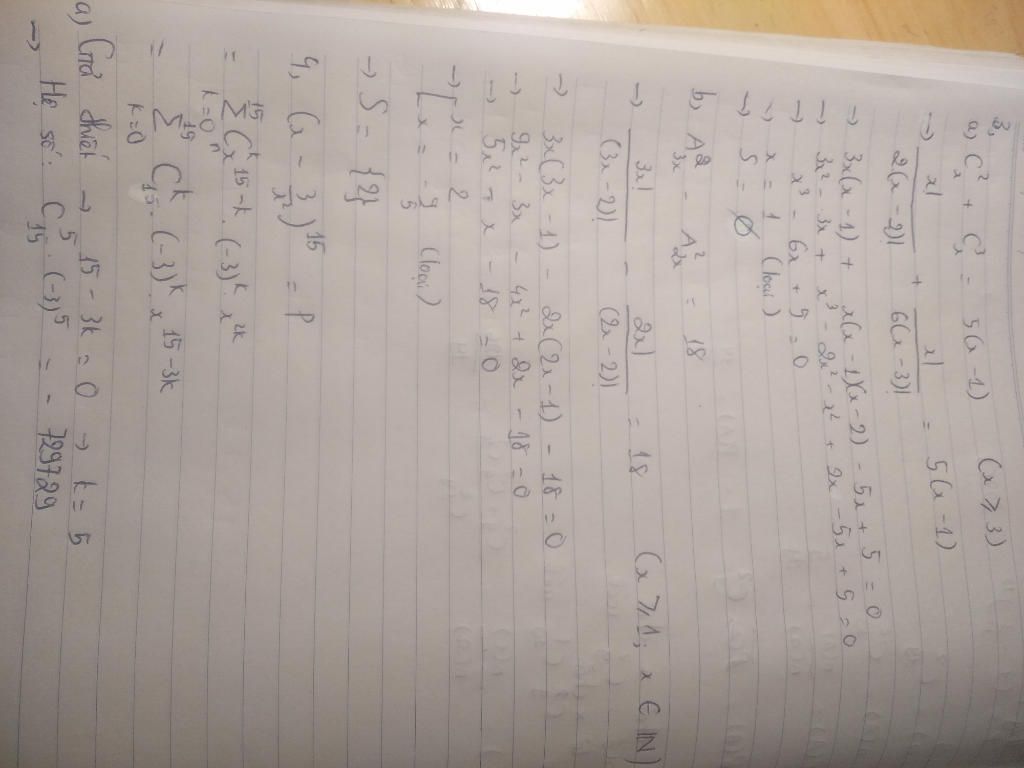 3,
a) C²ₓ + C³ₓ = 5(x-1) (x ≥ 3)
→ x!/2(x-2)! + x!/6(x-3)! = 5(x-1)
→ 3x(x-1) + x(x-1)(x-2) - 5x + 5 = 0
→ 3x² - 3x + x³ - 2x² - x² + 2x - 5x + 5 = 0
→ x³ - 6x + 5 = 0
→ x = 1 (loại)
→ S = ∅
b, A²₃ₓ - A²₂ₓ = 18
→ 3x!/(3x-2)! - 2x!/(2x-2)! = 18 (x ≥ 1; x ∈ ℕ)
→ 3x(3x-1) - 2x(2x-1) - 18 = 0
→ 9x² - 3x - 4x² + 2x - 18 = 0
→ 5x² - x - 18 = 0
→ [x = 2
[x = -9/5 (loại)
→ S = {2}
4, (x - 3/x²)¹⁵ = P
= Σ¹⁵ₖ₌₀ Cᵏₙ x¹⁵⁻ᵏ . (-3)ᵏ x²ᵏ
= Σ¹⁵ₖ₌₀ Cᵏ₁₅ . (-3)ᵏ . x¹⁵⁻³ᵏ
a) Giả thiết → 15 - 3k = 0 → k = 5
→ Hệ số: C⁵₁₅ . (-3)⁵ = - 729729